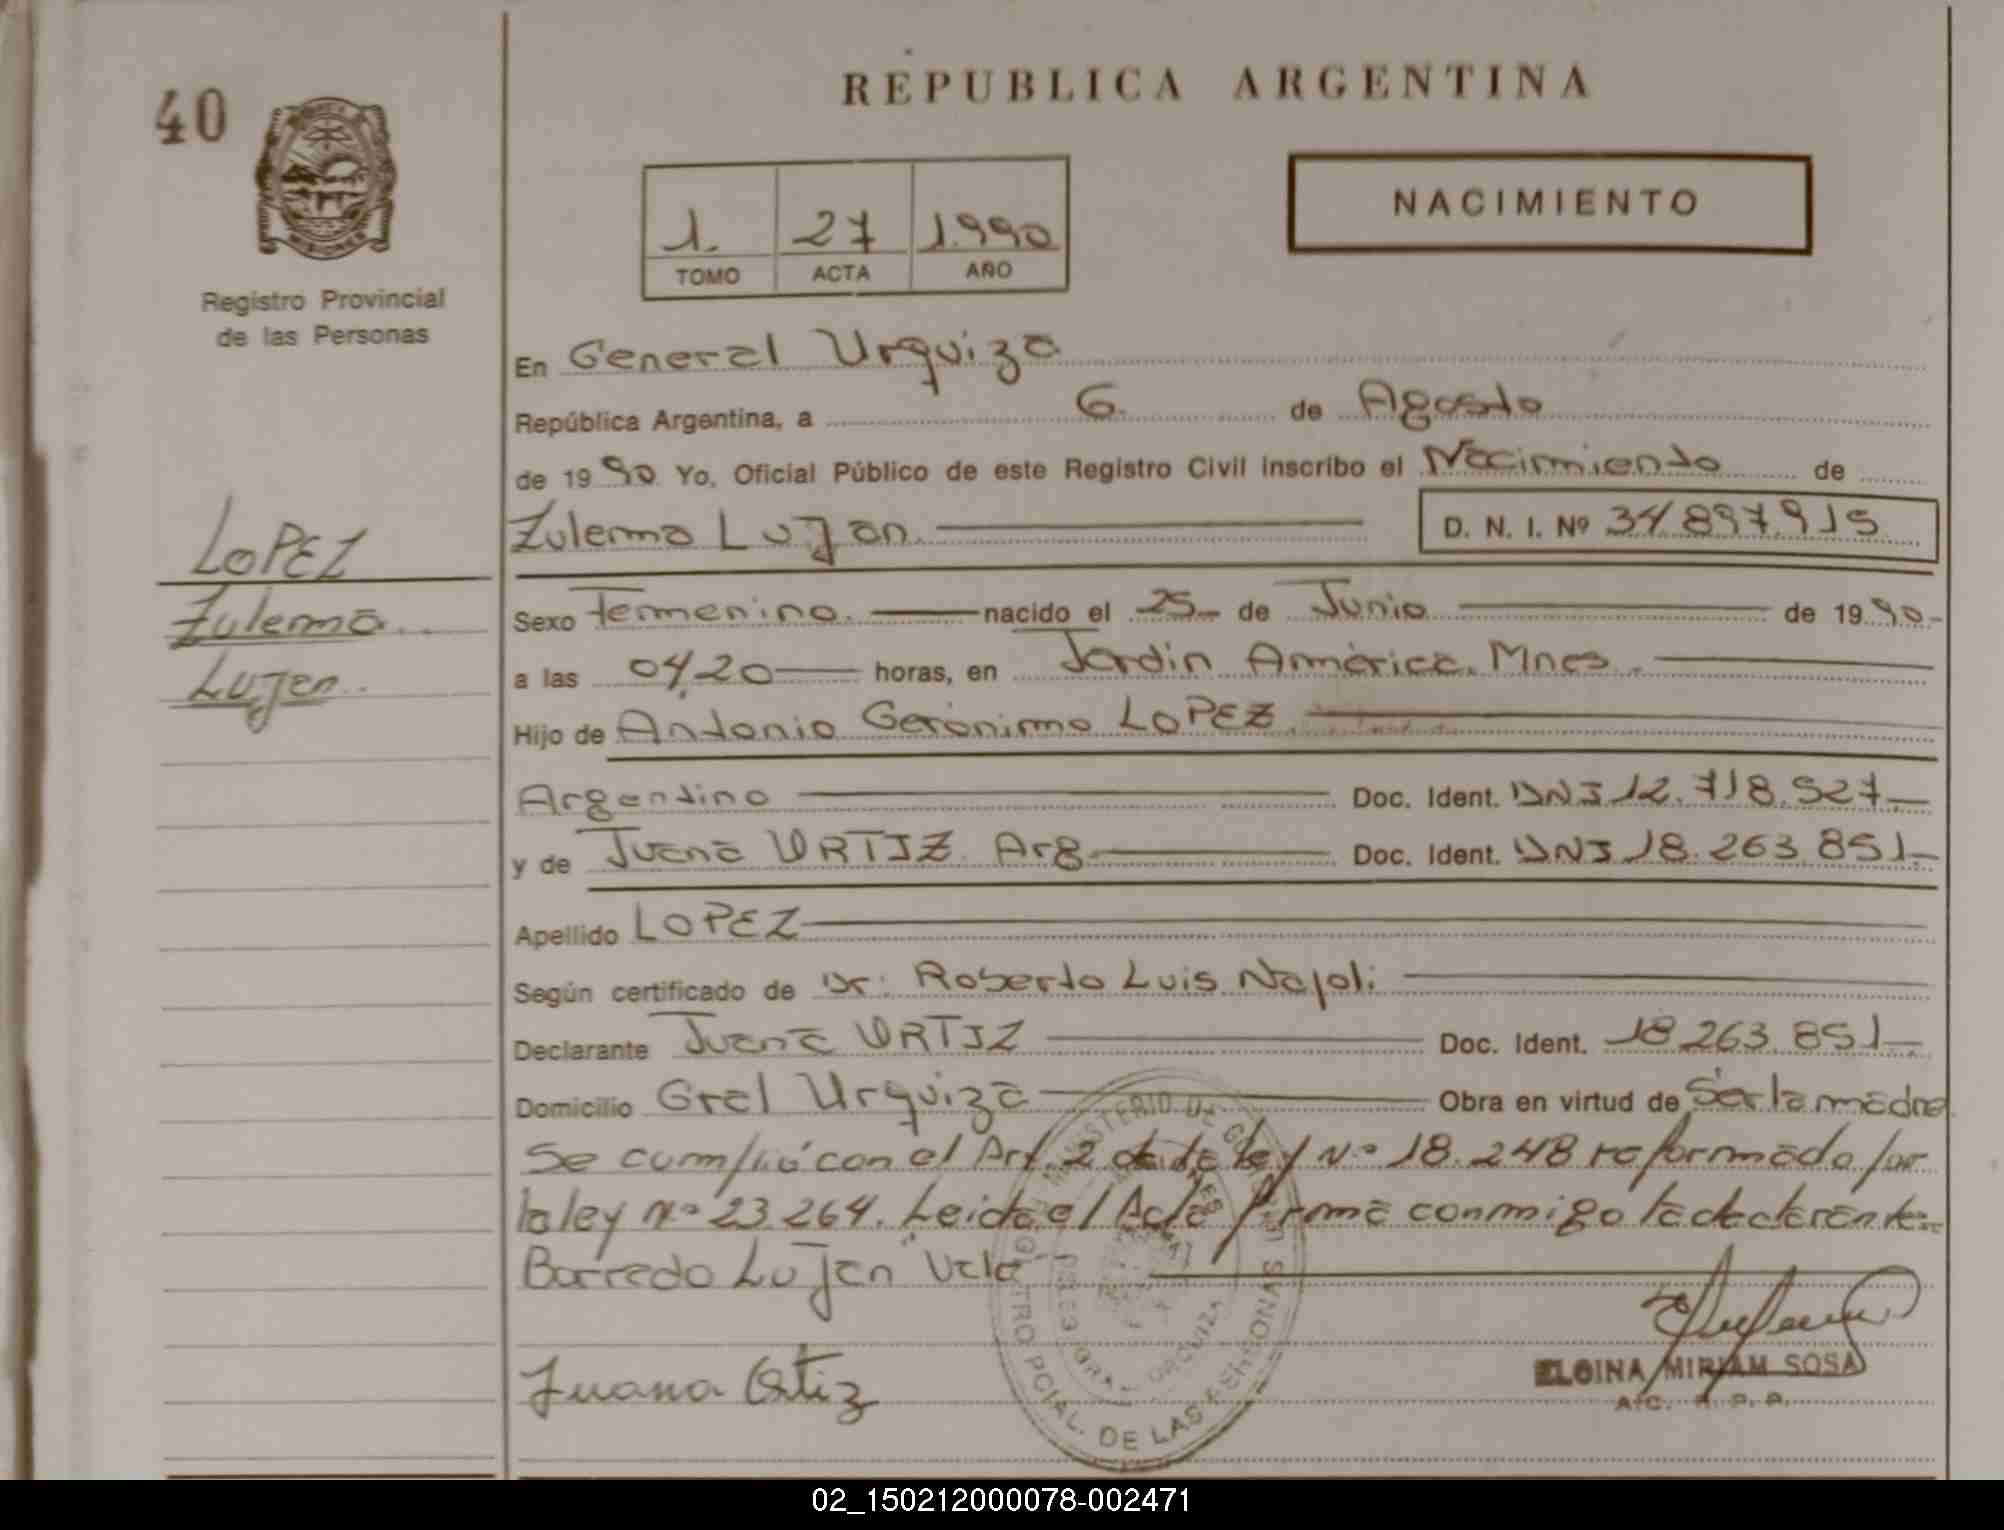 REPUBLICA ARGENTINA
40
NACIMIENTO
1. 27 1.990
TOMO ACTA AÑO
Registro Provincial
de las Personas
En General Urquiza
República Argentina, a 6. de Agosto
de 1990 Yo, Oficial Público de este Registro Civil inscribo el Nacimiento de
Zulema Lujan. D. N. I. Nº 34.897.915
LOPEZ
Zulema
Lujan.
Sexo Femenino. nacido el 25 de Junio de 1990-
a las 04,20 horas, en Jardin América. Mnes.
Hijo de Antonio Gerónimo LOPEZ.
Argentino Doc. Ident. DNI 12.718.527.-
y de Juana ORTIZ Arg. Doc. Ident. DNI 18.263.851.-
Apellido LOPEZ
Según certificado de Dr: Roberto Luis Napoli
Declarante Juana ORTIZ Doc. Ident. 18.263.851-
Domicilio Gral Urquiza Obra en virtud de ser la madre
Se cumplió con el Art. 2 de la ley Nº 18.248 reformado por
la ley Nº 23.264. Leida el Acta firma conmigo la declarante.
Borredo Lujan "Vale"
MINISTERIO DE GOBIERNO
REGISTRO PCIAL. DE LAS PERSONAS
GRAL URQUIZA
Juana Ortiz
ELOINA MIRIAM SOSA
A/C. R. P. P.
02_150212000078-002471